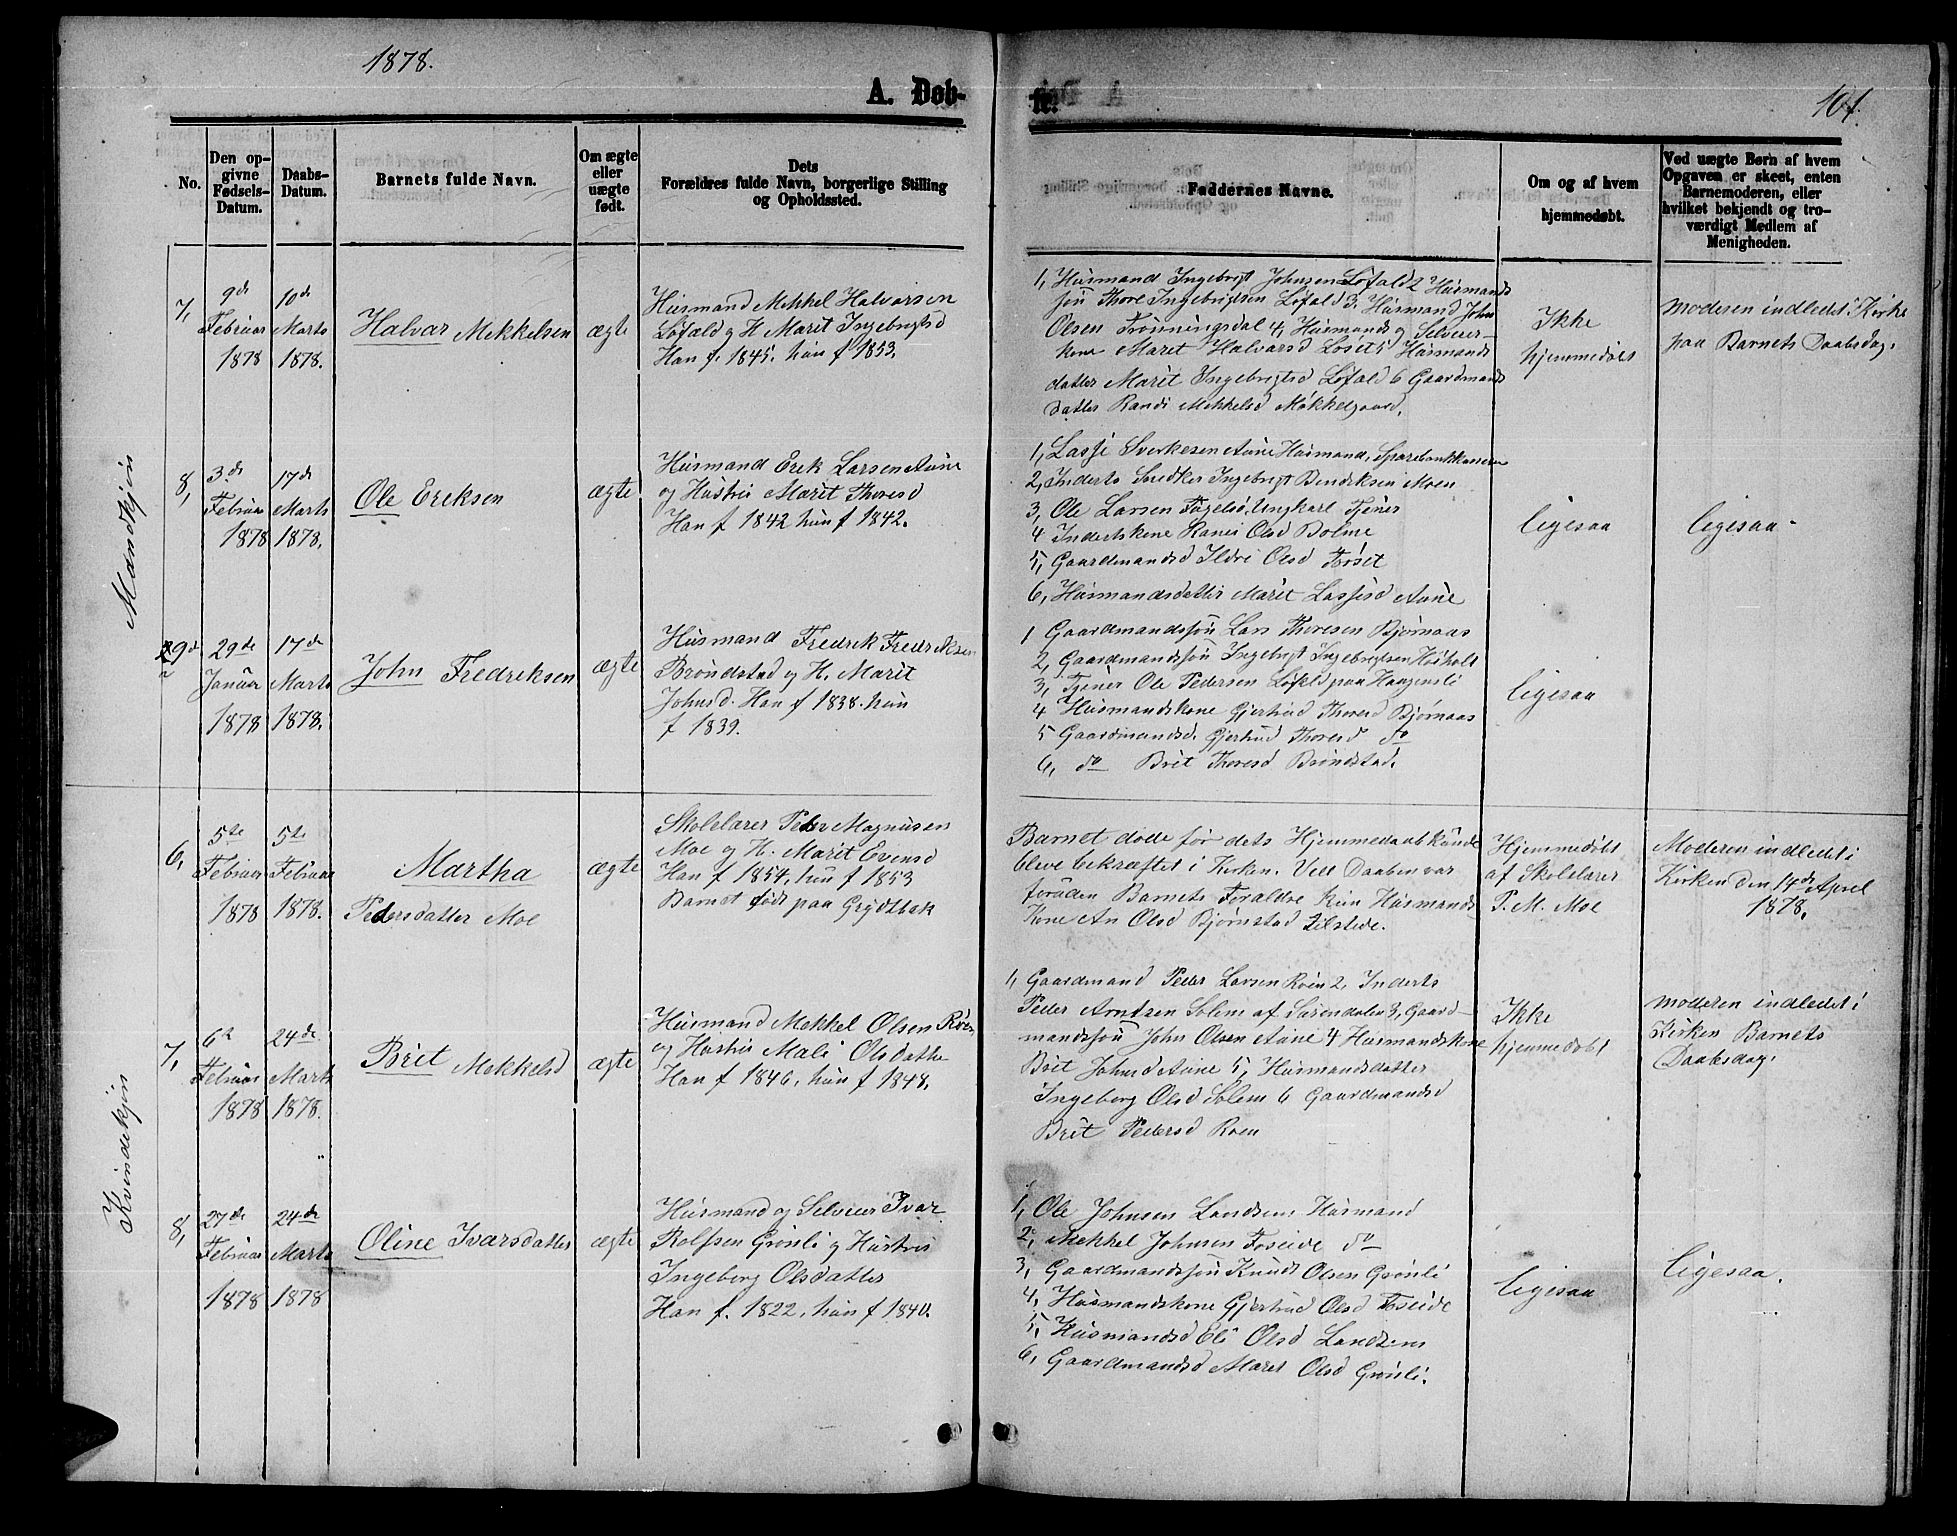 1878.
A. Døb-
te.
101.
No.
Den op-
givne
Fødsels-
Datum.
Daabs-
Datum.
Barnets fulde Navn.
Om ægte
eller
uægte
født.
Dets
Forældres fulde Navn, borgerlige Stilling
og Opholdssted.
Faddernes Navne.
Om og af hvem
hjemmedøbt.
Ved uægte Børn af hvem
Opgaven er skeet, enten
Barnemoderen, eller
hvilket bekjendt og tro-
værdigt Medlem af
Menigheden.
Mandkjøn
7,
9de
Februar
1878
10de
Marts
1878.
Halvar Mekkelsen
ægte
Husmand Mekkel Halvorsen
Løfald og H. Marit Ingebrigtsd
Han f. 1845. hun f 1853.
1, Husmand Ingebrigt Johnsen Løfald 2 Husmands
søn Thore Ingebrigtsen Løfald 3, Husmand John
Olsen Trønningsdal 4, Husmands og Selveier-
kone Maret Halvarsd Løset 5 Husmands
datter Marit Ingebrigtsd Løfald 6 Gaardmands
datter Randi Mekkelsd Møkkelgaard.
Ikke
hjemmedøbt
Moderen indledet i Kirke
paa Barnets Daabsdag.
8,
3de
Februar
1878
17de
Marts
1878.
Ole Ereksen
ægte
Husmand Erek Larsen Aune
og Hustru Marit Thoresd
Han f 1842 hun f 1842.
1, Lasse Sverkesen Aune Husmand, Sparebankkasserer
2, Inderts Snedker Ingebrigt Bendiksen Moen
3, Ole Larsen Fagelsø, Ungkarl Tjener
4 Indertskone Ranei Olsd Bolme
5, Gaardmandsd Ildri Olsd Tørset
6, Husmandsdatter Marit Lassesd Aune
ligesaa
ligesaa
29de
Januar
1878
17de
Marts
1878.
John Fredriksen
ægte
Husmand Fredrik Fredriksen
Brøndstad og H. Marit
Johnsd. Han f 1838. hun
f 1839.
1 Gaardmandssøn Lars Thoresen Bjørnaas
2, Gaardmandssøn Ingebrigt Ingebrigtsen Husholt
3, Tjener Ole Pedersen Løfald paa Haugensli
4 Husmandskone Gjertrud Thoresd Bjørnaas
5 Gaardmandsd. Gjertrud Thoresd do
6, do Brit Thoresd Brøndstad.
ligesaa
Kvindekjøn
6,
5te
Februar
1878
5te
Februar
1878.
Martha
Pedersdatter Moe
ægte
Skolelærer Peder Magnusen
Moe og H. Marit Evensd
Han f 1854, hun f 1853
Barnet født paa Grytbak
Barnet døde før dets Hjemmedaab kunde
bleve bekræftet i Kirken. Ved Daaben var
foruden Barnets Forældre kun Husmands
Kone An Olsd Bjørnstad tilstede.
Hjemmedøbt
af Skolelærer
P. M. Moe
Moderen indledet i
Kirken den 14de April
1878.
7,
6te
Februar
1878
24de
Marts
1878.
Brit Mekkelsd
ægte
Husmand Mekkel Olsen Røen
og Hustru Mali Olsdatter
Han f 1846, hun f 1848.
1, Gaardmand Peder Larsen Røen 2, Inderts
Peder Arntsen Solem af Surendalen 3, Gaard-
mandssøn John Olsen Aune 4 Husmandskone
Brit Johnsd Aune 5, Husmandsdatter
Ingeborg Olsd Solem 6 Gaardmandsd
Brit Pedersd Røen
Ikke
hjemmedøbt
moderen indledet i
Kirken Barnets
Daabsdag.
8,
27de
Februar
1878
24de
Marts
1878
Oline Ivarsdatter
ægte
Husmand og Selveier Ivar
Rolfsen Grønli og Hustru
Ingeborg Olsdatter
Han f. 1822, hun f 1840.
1, Ole Johnsen Landsem Husmand
2, Mekkel Johnsen Foseide do
3, Gaardmandssøn Knud Olsen Grønli
4, Husmandskone Gjertrud Olsd Foseide
5, Husmandsd Eli Olsd Landsem
6, Gaardmandsd Maret Olsd Grønli.
ligesaa
ligesaa.